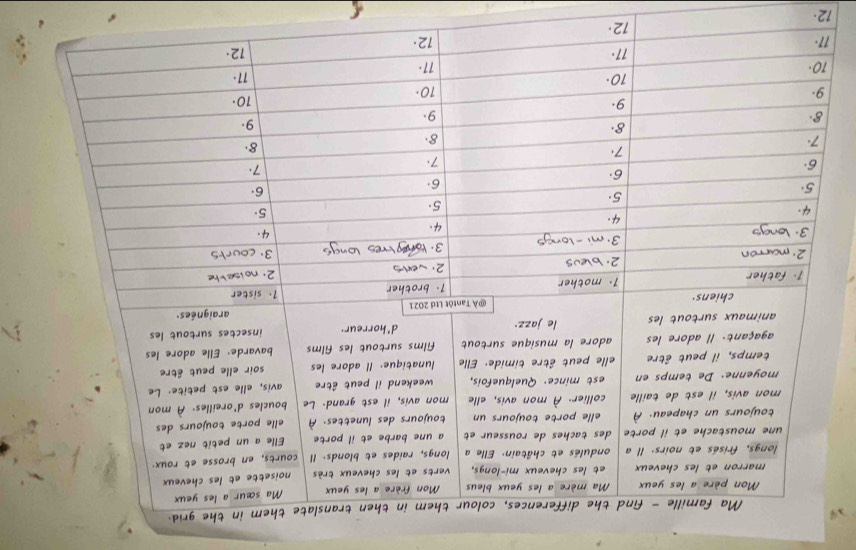 Ma famille - find the differences, colour them in then translate them in the grid.
Mon père a les yeux
marron et les cheveux
longs, frisés et noirs. Il a
une moustache et il porte
toujours un chapeau. À
mon avis, il est de taille
moyenne. De temps en
temps, il peut être
agaçant. Il adore les
animaux surtout les
chiens.
Ma mère a les yeux bleus
et les cheveux mi-longs,
ondulés et châtain. Elle a
des taches de rousseur et
elle porte toujours un
collier. À mon avis, elle
est mince. Quelquefois,
elle peut être timide. Elle
adore la musique surtout
le jazz.
Mon frère a les yeux
verts et les cheveux très
longs, raides et blonds. Il
a une barbe et il porte
toujours des lunettes. À
mon avis, il est grand. Le
weekend il peut être
lunatique. Il adore les
films surtout les films
d'horreur.
Ma sœur a les yeux
noisette et les cheveux
courts, en brosse et roux.
Elle a un petit nez et
elle porte toujours des
boucles d'oreilles. À mon
avis, elle est petite. Le
soir elle peut être
bavarde. Elle adore les
insectes surtout les
araignées.
@À Tantôt Ltd 2021
1. father
2. marron
3. longs
4.
5.
6.
7.
8.
9.
10.
11.
12.
1. mother
2. bleus
3. mi-longs
4.
5.
6.
7.
8.
9.
10.
11.
12.
1. brother
2. verts
3. tres longs
4.
5.
6.
7.
8.
9.
10.
11.
12.
1. sister
2. noisette
3. courts
4.
5.
6.
7.
8.
9.
10.
11.
12.